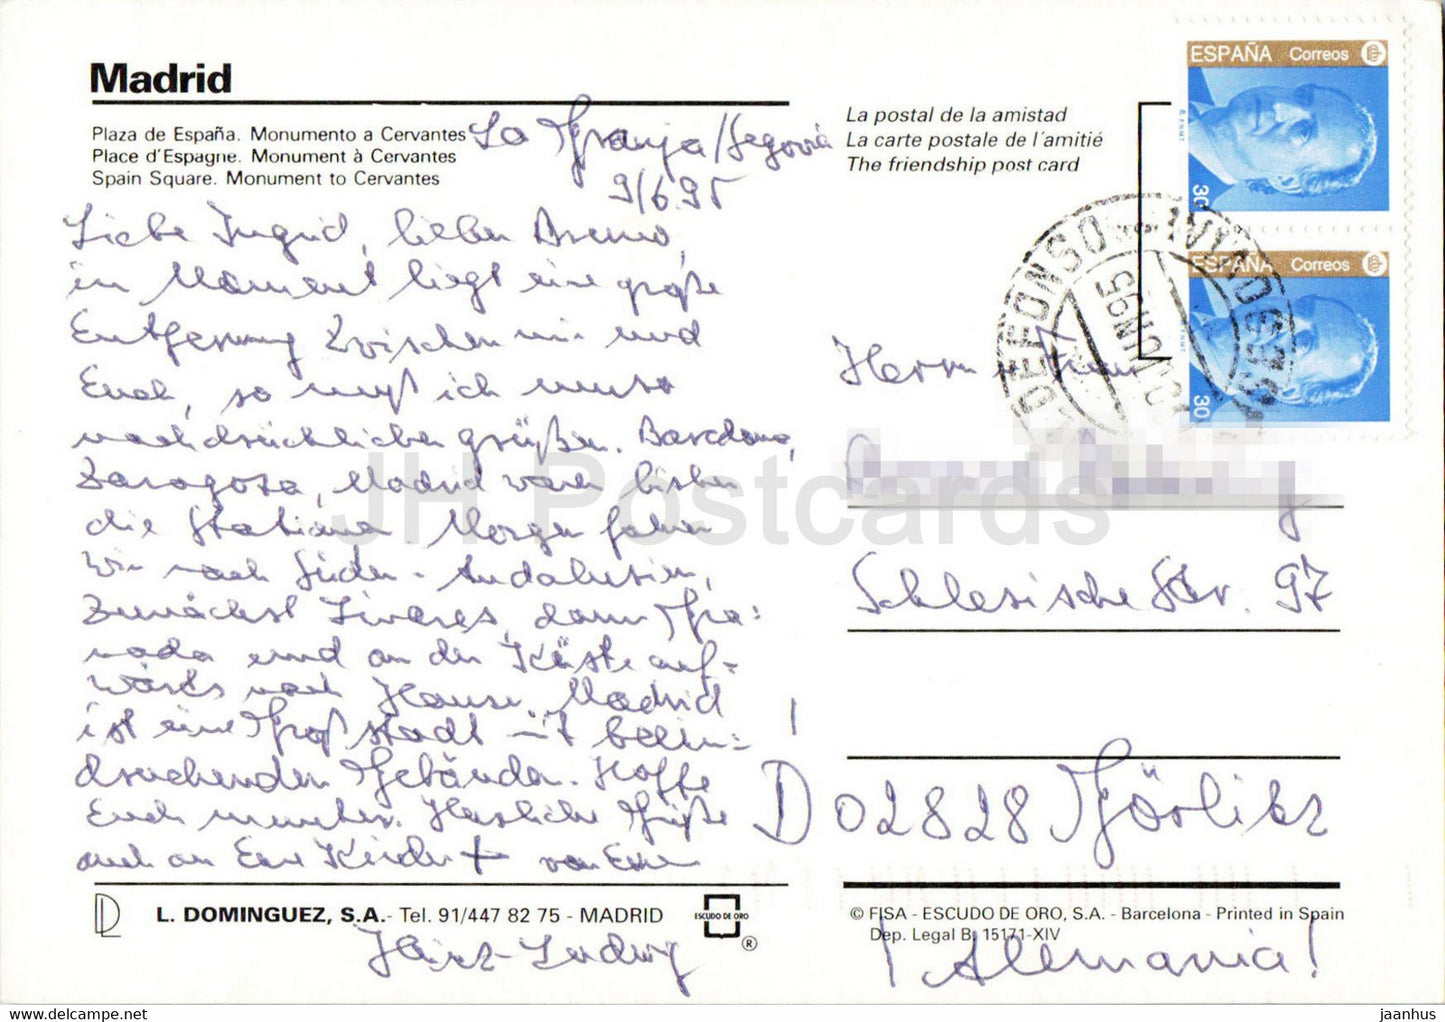 Madrid
Plaza de España. Monumento a Cervantes
Place d'Espagne. Monument à Cervantes
Spain Square. Monument to Cervantes
La Granja/Segovia
9/6.95
Liebe Ingrid, lieber Bruno,
im Moment liegt eine große
Entfernung zwischen mir und
Euch, so muß ich umso
nachdrücklicher grüßen. Barcelona,
Zaragoza, Madrid waren bisher
die Stationen. Morgen fahren
wir nach Süden - Andalusien,
zunächst Linares, dann Gra=
nada und an der Küste auf=
wärts nach Hause. Madrid
ist eine Großstadt mit beein=
druckenden Gebäuden. Hoffe
Euch munter. Herzliche Grüße
auch an Eure Kinder + von Eurem
Heinz-Ludwig
L. DOMINGUEZ, S.A.- Tel. 91/447 82 75 - MADRID
ESCUDO DE ORO
®
La postal de la amistad
La carte postale de l'amitié
The friendship post card
ESPAÑA Correos
30
ESPAÑA Correos
30
ILDEFONSO
JUN 95
SEGOVIA
Herrn
Schlesische Str. 97
D 02828 Görlitz
© FISA - ESCUDO DE ORO, S.A. - Barcelona - Printed in Spain
Dep. Legal B. 15171-XIV
¡Alemania!
JH Postcards
hippostcard.com
jaanhus